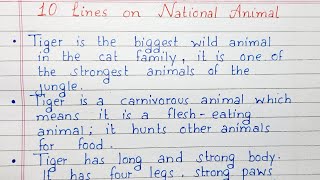 10 Lines on National Animal
• Tiger is the biggest wild animal
in the cat family, it is one of
the strongest animals of the
jungle.
• Tiger is a carnivorous animal which
means it is a flesh-eating
animal; it hunts other animals
for food.
• Tiger has long and strong body.
It has four legs, strong paws